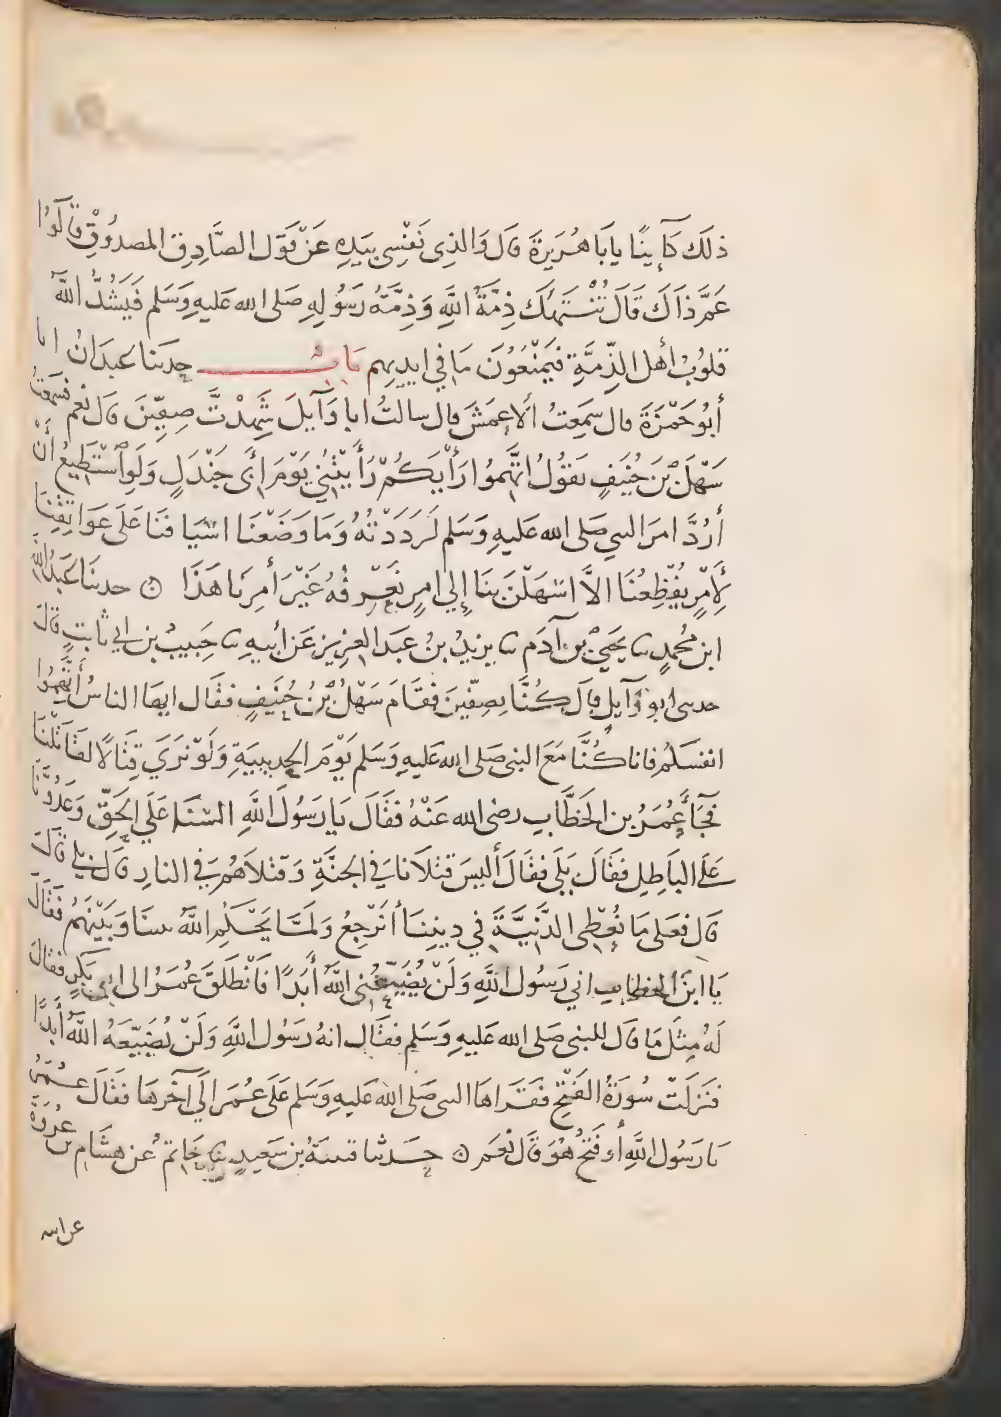 ذلك كاينا يابا هريرة قال والذي نفسي بيده عن قول الصادق المصدوق قالوا
عم ذاك قال تنتهك ذمة الله وذمة رسوله صلى الله عليه وسلم فيشد الله
قلوب أهل الذمة فيمنعون ما في ايديهم باب حدثنا عبدان انا
أبو حمزة قال سمعت الاعمش قال سالت ابا وآيل شهدت صفين قال نعم فسمعت
سهل بن حنيف يقول اتهموا رأيكم رأيتني يوم أبي جندل ولو أستطيع أن
أرد امر النبي صلى الله عليه وسلم لرددته وما وضعنا اسيافنا على عواتقنا
لأمر يفظعنا الا اسهلن بنا إلي امر نعرفه غير أمرنا هذا ۞ حدثنا عبد الله
ابن محمد نا يحيي بن آدم نا يزيد بن عبد العزيز عن أبيه نا حبيب بن ابي ثابت قال
حدثنى ابو وآيل قال كنا بصفين فقام سهل بن حنيف فقال ايها الناس أتهموا
انفسكم فانا كنا مع النبى صلى الله عليه وسلم يوم الحديبية ولو نري قتالا لقاتلنا
فجآء عمر بن الخطاب رضى الله عنه فقال يا رسول الله السنا علي الحق وعدونا
على الباطل فقال بلى فقال أليس قتلانا في الجنة وقتلاهم في النار قال بلي قال
قال فعلى ما نعطى الدنية في ديننا أنرجع ولما يحكم الله بيننا وبينهم فقال
يا ابن الخطاب اني رسول الله ولن يضيعني الله أبدا فانطلق عمر الى ابى بكر فقال
له مثل ما قال للنبى صلى الله عليه وسلم فقال انه رسول الله ولن يضيعه الله أبدا
فنزلت سورة الفتح فقراها النبى صلى الله عليه وسلم على عمر إلي آخرها فقال عمر
يا رسول الله أو فتح هو قال نعم ۞ حدثنا قتيبة بن سعيد نا حاتم عن هشام بن عروة
عن ابيه